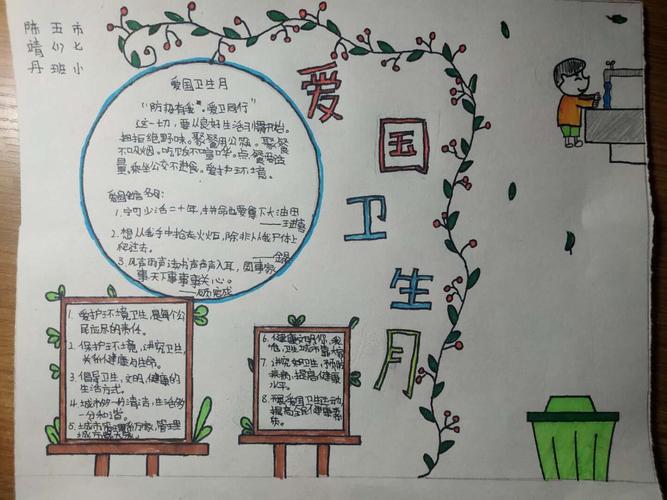 市七小
五(4)班
陈靖丹
爱国卫生月
爱国卫生月
"防疫有我，爱卫同行"
这一切，要从良好生活习惯开始。
拒绝野味。聚餐用公筷。聚餐
不吸烟。吃饭不喧哗。点餐要适
量。乘坐公交不进食。爱护环境。
爱国名言名句:
1.宁可少活二十年，拼命也要拿下大油田
——王进喜
2.想从我手中抢走火炬，除非从我尸体上
跨过去。
——金晶
3.风声雨声读书声声声入耳，国事家
事天下事事事关心。
——顾宪成
1.爱护环境卫生，是每个公
民应尽的责任。
2.保护环境，讲究卫生，
关系健康与生命。
3.倡导卫生，文明，健康的
生活方式。
4.城市多一分清洁，生活多
一分和谐。
5.城市管理系万家，管理
城市靠大家。
6.健康文明你，我，
他，卫生城市靠大家
7.讲究卫生，预防
疾病，提高健康
水平。
8.开展爱国卫生运动，
提高全民健康素
质。